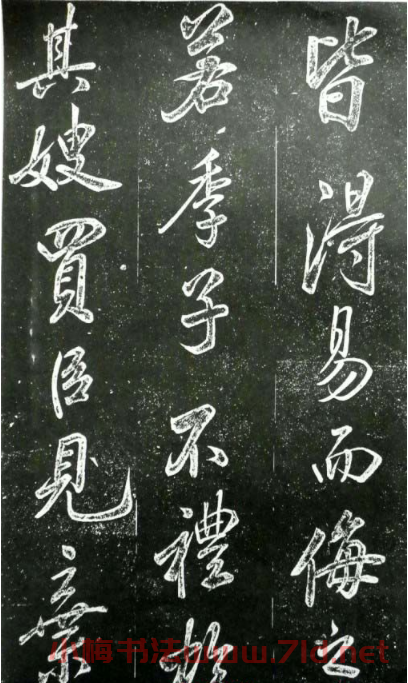 皆得易而侮之
若季子不禮於
其嫂買臣見棄
小梅书法www.7ld.net